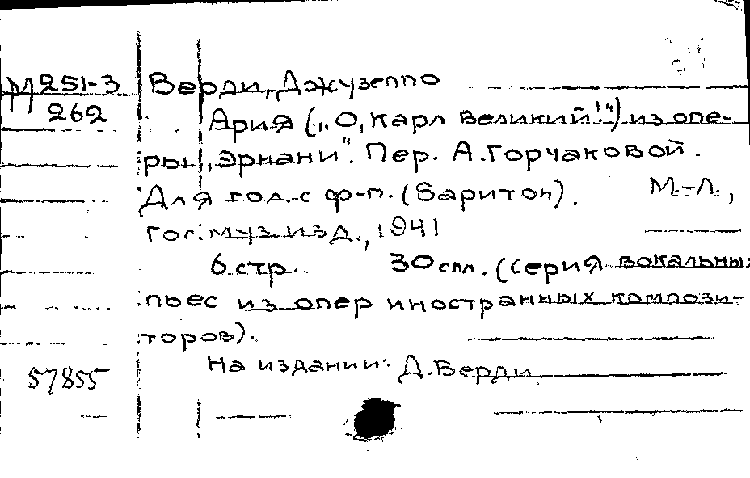 М251-3 Верди, Джузеппо
262 Ария („О, Карл великий!“) из опе-
ры „Эрнани“. Пер. А.Горчаковой.
Для гол. с ф-п. (Баритон). М.-Л.,
Гос. муз. изд., 1941
6 стр. 30 см. (серия вокальных
пьес из опер иностранных компози-
торов).
57855 На издании: Д.Верди